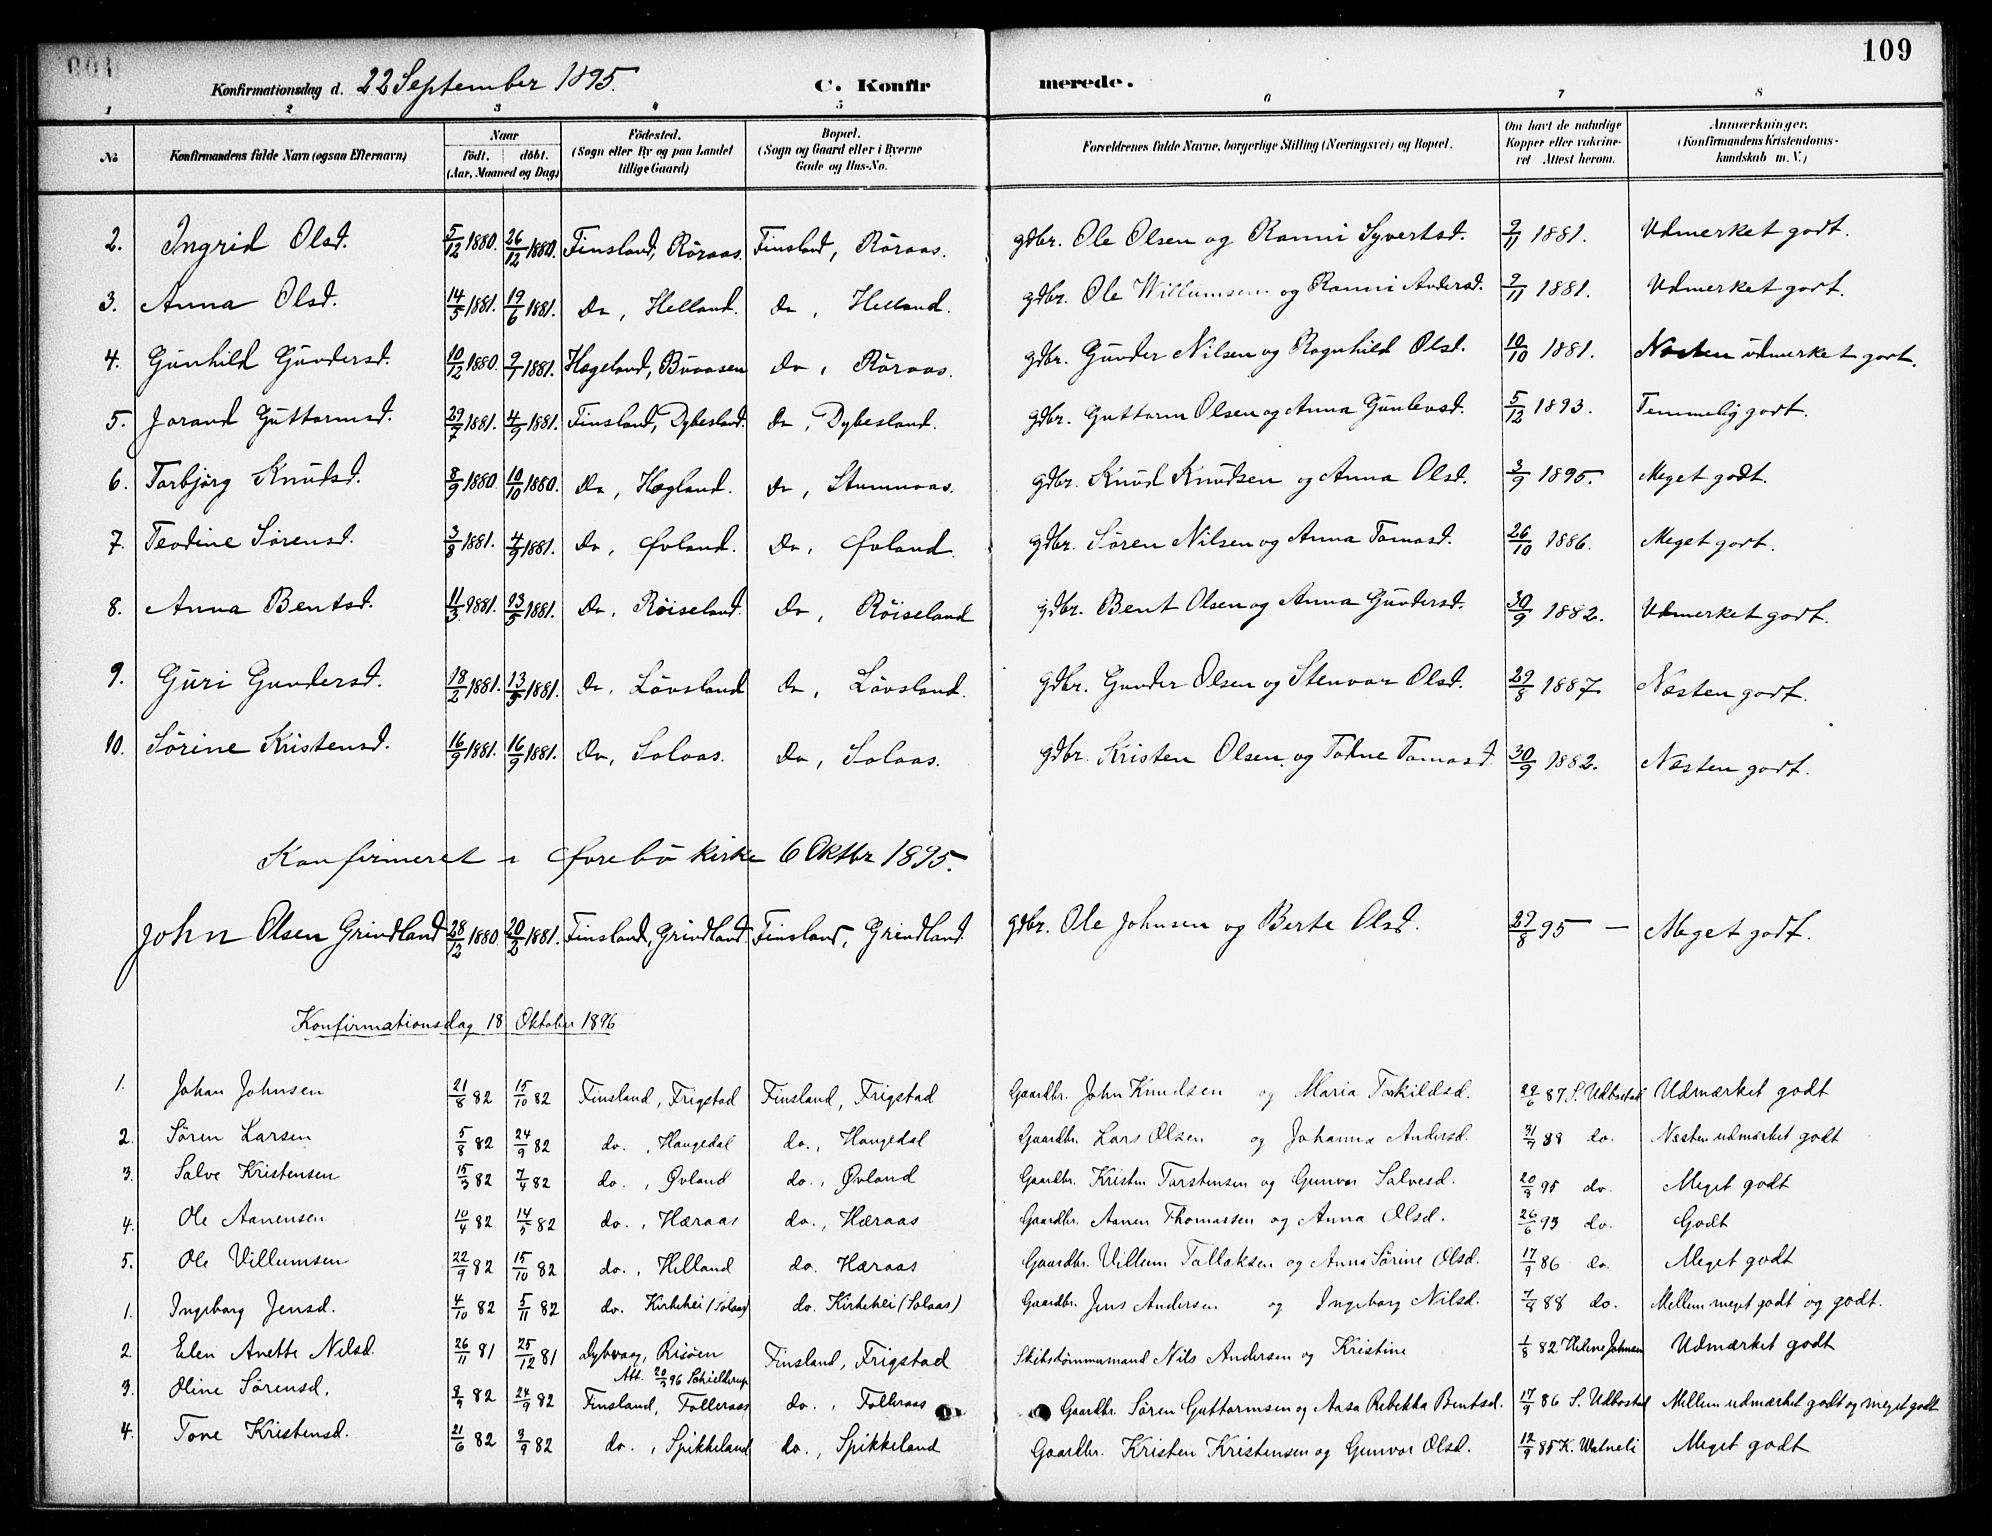 109
Konfirmationsdag d. 22 September 1895. C. Konfirmerede.
1 2 3 4 5 6 7 8
No Konfirmandens fulde Navn (ogsaa Efternavn) Naar født. døbt. (Aar, Maaned og Dag) Födested. (Sogn eller By og paa Landet tillige Gaard) Bopæl. (Sogn og Gaard eller i Byerne Gade og Hus-No. Forældrenes fulde Navne, borgerlige Stilling (Næringsvei) og Bopæl. Om havt de naturlige Kopper eller vakcineret Attest herom. Anmærkninger. (Konfirmandens Kristendomskundskab m. V.)
2. Ingrid Olsd. 5/12 1880. 26/12 1880. Finsland, Röraas. Finsland, Röraas. gdbr. Ole Olsen og Ranni Syvertsd. 9/11 1881. Udmerket godt.
3. Anna Olsd. 14/5 1881. 19/6 1881. Do, Helland. Do, Helland. gdbr. Ole Willumsen og Ranni Andersd. 9/11 1881. Udmerket godt.
4. Gunhild Gundersd. 10/12 1880. 9/1 1881. Hægeland, Buaasen Do, Röraas. gdbr. Gunder Nilsen og Ragnhild Olsd. 10/10 1881. Næsten udmerket godt.
5. Jorand Guttormsd. 29/7 1881. 4/9 1881. Finsland, Dybesland. Do, Dybesland. gdbr. Guttorm Olsen og Anna Gunlevsd. 5/12 1893. Temmelig godt.
6. Torbjørg Knudsd. 8/9 1880. 10/10 1880. Do, Høgland. Do, Stumnaas. gdbr. Knud Knudsen og Anna Olsd. 3/9 1895. Meget godt.
7. Teodine Sørensd. 3/8 1881. 4/9 1881. Do, Øvland. Do, Øvland. gdbr. Søren Nilsen og Anna Tomasd. 26/10 1886. Meget godt.
8. Anna Bentsd. 11/3 1881. 13/5 1881. Do, Röiseland. Do, Röiseland gdbr. Bent Olsen og Anna Gundersd. 30/9 1882. Udmerket godt.
9. Guri Gundersd. 18/2 1881. 13/5 1881. Do, Lövsland Do, Lövsland. gdbr. Gunder Olsen og Stenvor Olsd. 29/8 1887. Næsten godt.
10. Sörine Kristensd. 16/9 1881. 16/9 1881. Do, Solaas. Do, Solaas. gdbr. Kristen Olsen og Tohne Tomasd. 30/9 1882. Næsten godt.
Konfirmeret i Øvrebö kirke 6 Oktbr 1895.
John Olsen Grindland 28/12 1880 20/2 1881. Finsland, Grindland. Finsland, Grindland. gdbr. Ole Johnsen og Berte Olsd. 29/8 95 — Meget godt.
Konfirmationsdag 18 Oktober 1896
1. Johan Johnsen 21/8 82 15/10 82 Finsland, Frigstad Finsland, Frigstad Gaardbr. John Knudsen og Maria Torkildsd. 29/6 87 S. Udbostad Udmærket godt
2. Søren Larsen 5/8 82 24/9 82 do., Haugedal do., Haugedal Gaardbr. Lars Olsen og Johanna Andersd. 31/7 88 do. Næsten udmærket godt
3. Salve Kristensen 15/3 82 7/4 82 do., Øvland do., Øvland Gaardbr. Kristen Torstensen og Gunvor Salvesd. 20/8 95 do. Meget godt
4. Ole Aanensen 10/4 82 14/5 82 do., Hæraas do., Hæraas Gaardbr. Aanen Thomassen og Anna Olsd. 26/6 93 do. Godt
5. Ole Villumsen 22/9 82 15/10 82 do., Helland do. Hæraas Gaardbr. Villum Tallaksen og Anna Sörine Olsd. 17/9 86 do. Meget godt
1. Ingeborg Jensd. 4/10 82 5/11 82 do. Kirkehei (Solaas) do. Kirkehei (Solaas) Gaardbr. Jens Andersen og Ingeborg Nilsd. 7/9 88 do. Mellem meget godt og godt.
2. Elen Anette Nilsd. 26/11 81 25/12 81 Dybvaag, Risöen Finsland, Frigstad Skibstömmermand Nils Andersen og Kristine 1/8 82 Helene Johnsen Udmærket godt
Att. 20/3 96 Schielderup
3. Oline Sörensd. 8/9 82 24/9 82 Finsland, Folleraas do., Folleraas Gaardbr. Sören Guttormsen og Aasa Rebekka Bentsd. 17/9 86 S. Udbostad Mellem udmærket godt og meget godt
4. Tone Kristensd. 21/6 82 3/9 82 do., Spikkeland do., Spikkeland Gaardbr. Kristen Kristensen og Gunvor Olsd. 12/9 85 K. Watneli Meget godt